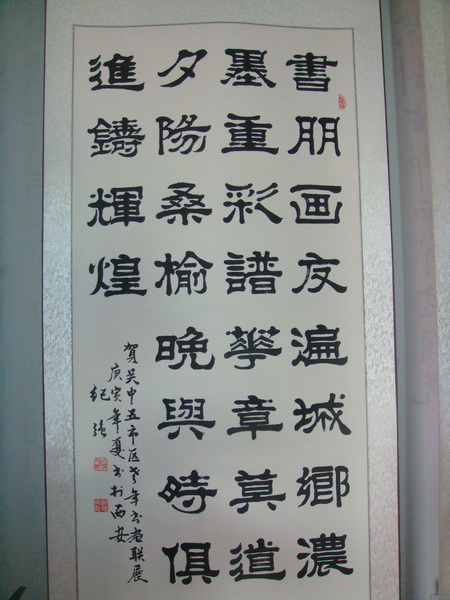 書朋画友遍城鄉濃
墨重彩譜華章莫道
夕陽桑榆晚與時俱
進鑄輝煌
賀关中五市区老年书画联展
庚寅年夏书於西安
紀